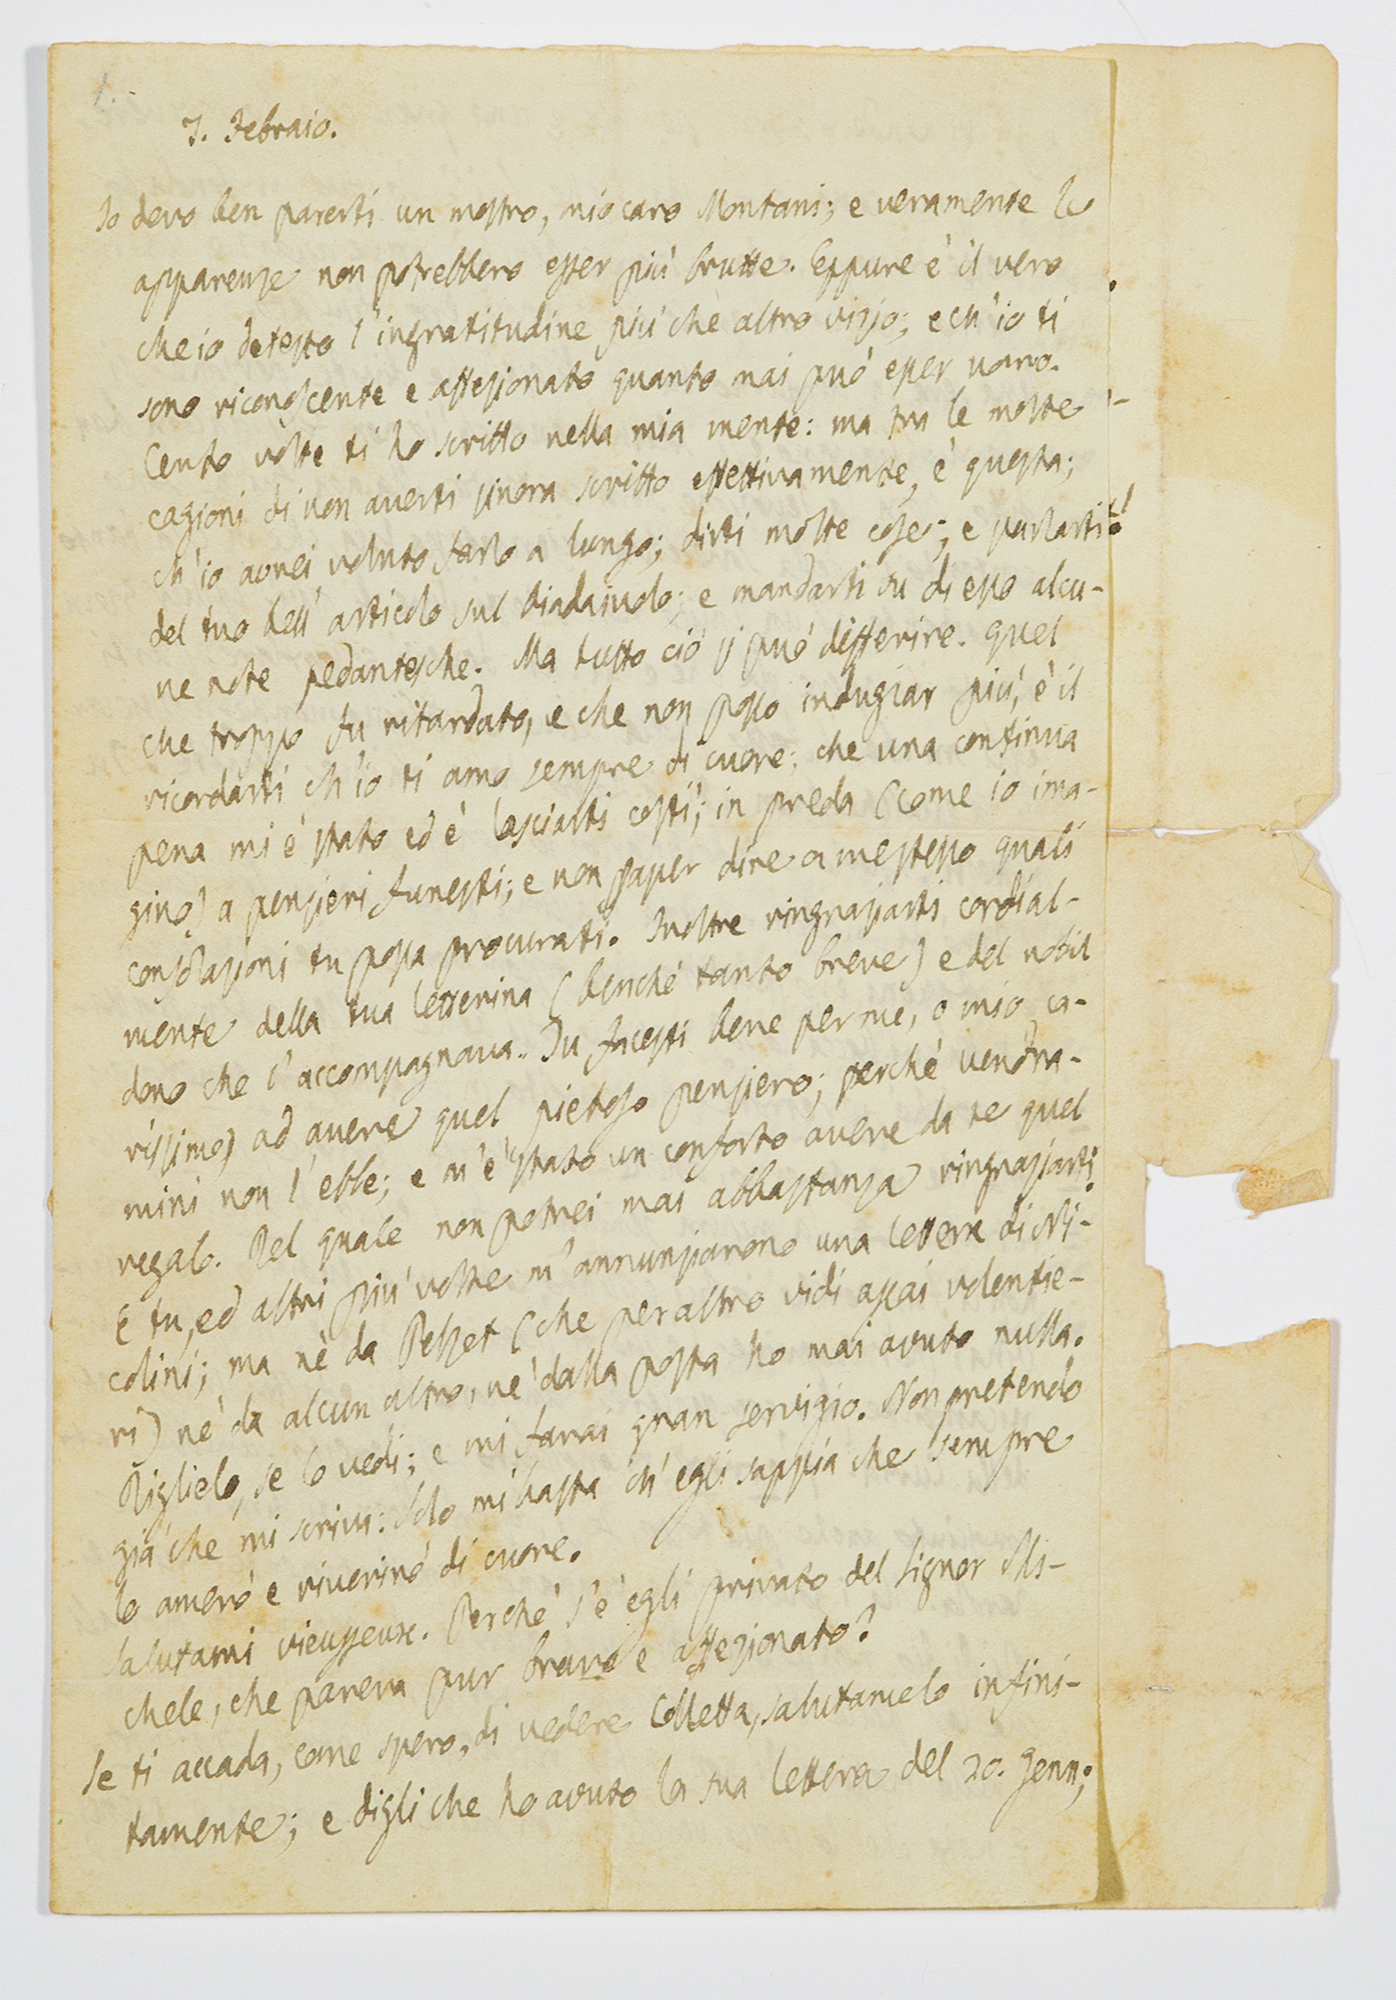 7. Febraio.
Io devo ben parerti un mostro, mio caro Montani; e veramente le
apparenze non potrebbero esser più brutte. Eppure è il vero
che io detesto l'ingratitudine più che altro vizio; e ch'io ti
sono riconoscente e affezionato quanto mai può esser uomo.
Cento volte ti ho scritto nella mia mente: ma tra le molte
cagioni di non averti sinora scritto effettivamente, è questa;
ch'io avrei voluto farlo a lungo; dirti molte cose; e parlarti
del tuo bell'articolo sul biadajuolo; e mandarti su di esso alcu-
ne note pedantesche. Ma tutto ciò si può differire. Quel
che troppo fu ritardato, e che non posso indugiar più, è il
ricordarti ch'io ti amo sempre di cuore; che una continua
pena mi è stato ed è lasciarti costì; in preda (come io ima-
gino) a pensieri funesti; e non saper dire a me stesso quali
consolazioni tu possa procurarti. Inoltre ringraziarti cordial-
mente della tua letterina (benchè tanto breve) e del nobil
dono che l'accompagnava. Tu facesti bene per me, o mio ca-
rissimo) ad avere quel pietoso pensiero; perchè vendra-
mini non l'ebbe; e m'è stato un conforto avere da te quel
regalo. Del quale non potrei mai abbastanza ringraziarti.
E tu, ed altri più volte m'annunziarono una lettera di Ni-
colini; ma nè da Pelzet (che per altro vidi assai volentie-
ri) nè da alcun altro, nè dalla posta ho mai avuto nulla.
Diglielo, se lo vedi; e mi farai gran servigio. Non pretendo
già che mi scriva: solo mi basta ch'egli sappia che sempre
lo amerò e riverirò di cuore.
Salutami vieusseux. Perchè s'è egli privato del signor Mi-
chele, che pareva pur bravo e affezionato?
Se ti accada, come spero, di vedere Colletta, salutamelo infini-
tamente; e digli che ho avuto la sua lettera del 20. Genn;